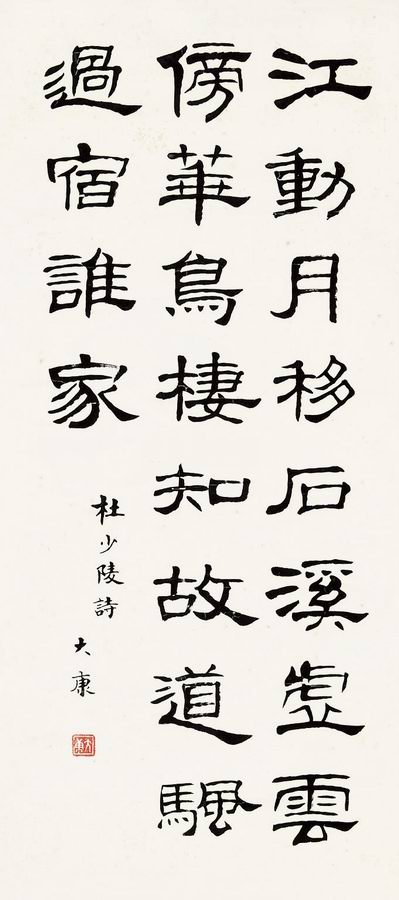 江動月移石溪虛雲
傍華鳥棲知故道颿
過宿誰家
杜少陵詩 大康
大康